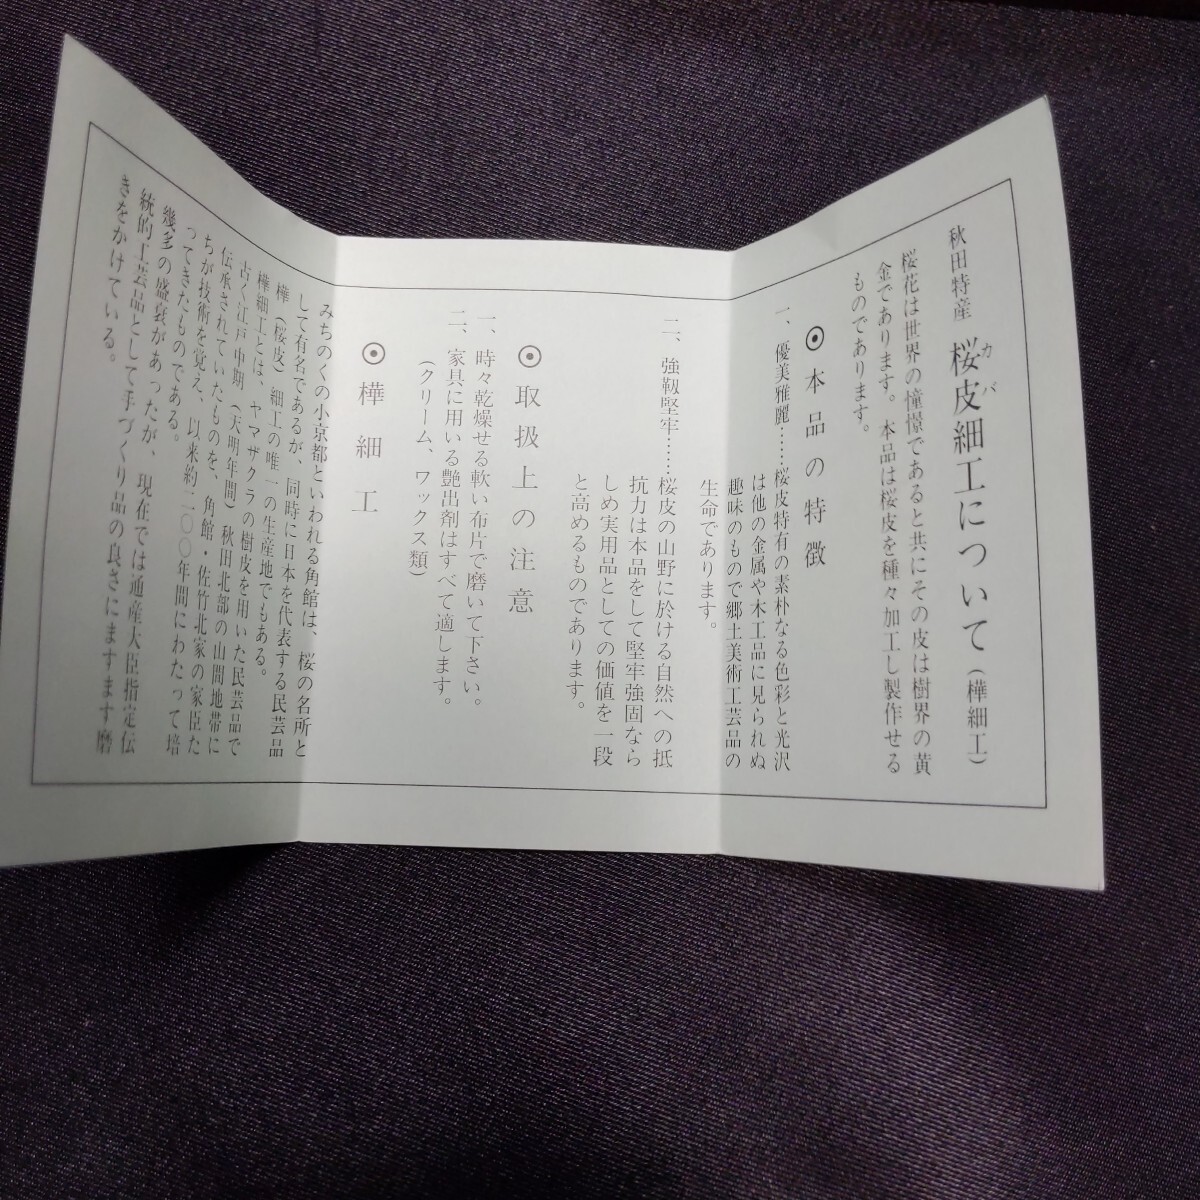 秋田特産 桜皮細工について(樺細工)
カバ
桜花は世界の憧憬であると共にその皮は樹界の黄
金であります。本品は桜皮を種々加工し製作せる
ものであります。
◉本品の特徴
一、優美雅麗……桜皮特有の素朴なる色彩と光沢
は他の金属や木工品に見られぬ
趣味のもので郷土美術工芸品の
生命であります。
二、強靱堅牢……桜皮の山野に於ける自然への抵
抗力は本品をして堅牢強固なら
しめ実用品としての価値を一段
と高めるものであります。
◉取扱上の注意
一、時々乾燥せる軟い布片で磨いて下さい。
二、家具に用いる艶出剤はすべて適します。
(クリーム、ワックス類)
◉樺細工
みちのくの小京都といわれる角館は、桜の名所と
して有名であるが、同時に日本を代表する民芸品
樺(桜皮)細工の唯一の生産地でもある。
樺細工とは、ヤマザクラの樹皮を用いた民芸品で
古く江戸中期(天明年間)秋田北部の山間地帯に
伝承されていたものを、角館・佐竹北家の家臣た
ちが技術を覚え、以来約二〇〇年間にわたって培
ってきたものである。
幾多の盛衰があったが、現在では通産大臣指定伝
統的工芸品として手づくり品の良さにますます磨
きをかけている。